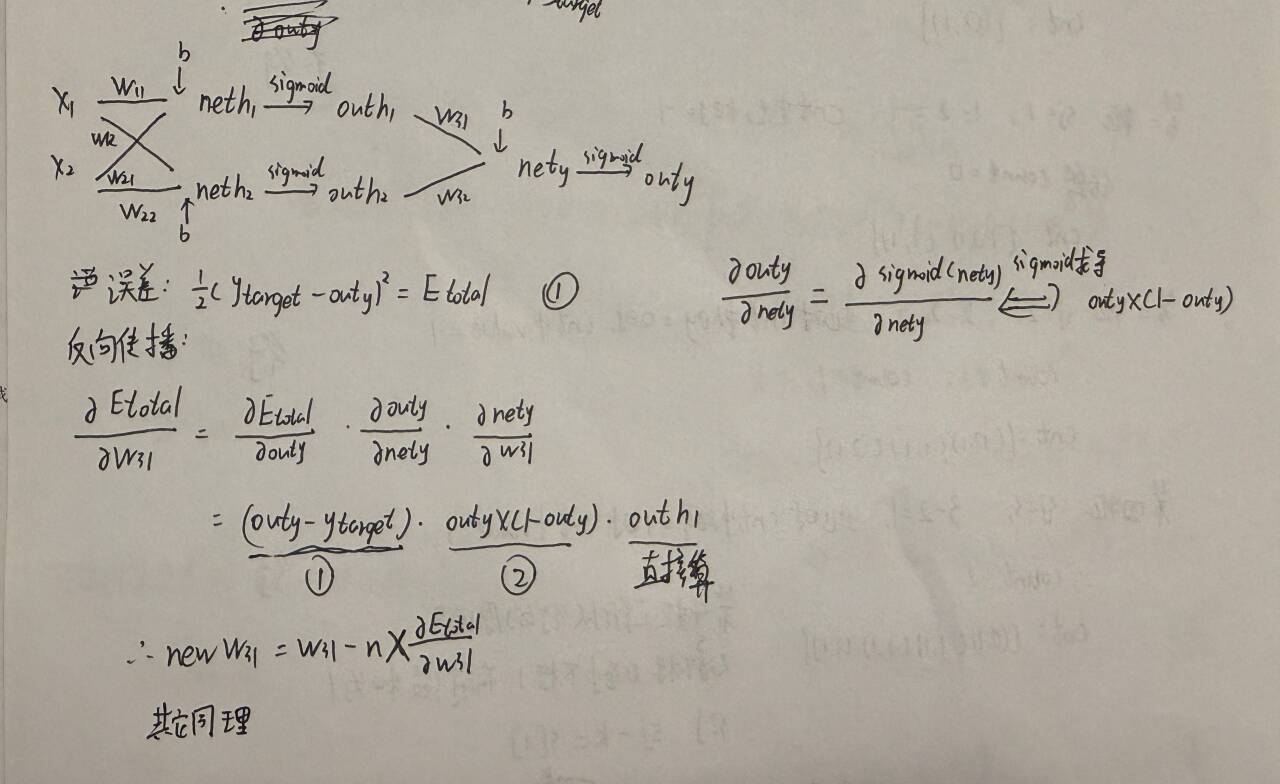 target
∂outy
b
x1 W11 neth1 sigmoid→ outh1 W31 b
W12
x2 W21 neth2 sigmoid→ outh2 W32 nety sigmoid→ outy
W22
b
误差: 1/2(ytarget - outy)² = Etotal ①
∂outy/∂nety = ∂sigmoid(nety)/∂nety sigmoid求导⟺ outy×(1-outy)
反向传播:
∂Etotal/∂W31 = ∂Etotal/∂outy · ∂outy/∂nety · ∂nety/∂W31
= (outy - ytarget) · outy×(1-outy) · outh1
① ② 直接算
∴ new W31 = W31 - n × ∂Etotal/∂W31
其它同理